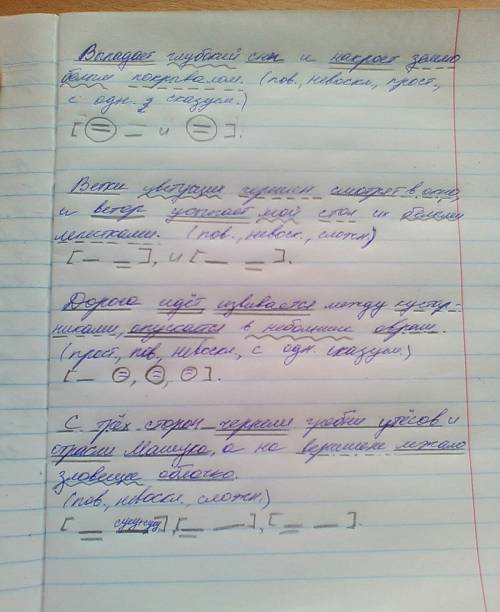 Выпадает глубокий снег и накроет землю
белым покрывалом. (пов., невоскл., прост.,
с одн. 2 сказуем.)
[ = — и = ].
Ветки цветущих черешен смотрят в окно,
и ветер усыпает мой стол их белыми
лепестками. (пов., невоск., сложн.)
[— =], и [— =].
Дорога идёт, извивается между кустар-
никами, опускается в небольшие овраги.
(прост., пов., невоскл., с одн. сказуем.)
[— =, =, =].
С трёх сторон чернели гребни утёсов и
отрасли Машука, а на вершине лежало
зловещее облачко.
(пов., невоскл., сложн.)